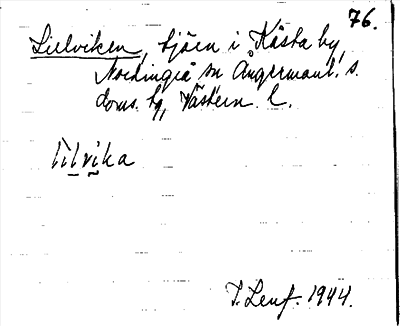 76.
Lillviken, tjärn i Kåsta by,
Nordingrå sn Ångermanl. s.
doms. hg, Västern. l.
lìlvika
I. Lenf. 1944.